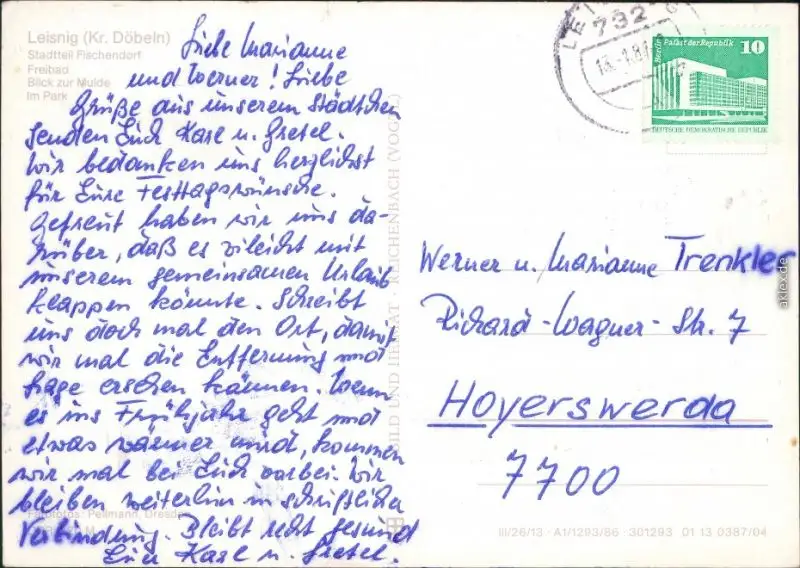 Leisnig (Kr. Döbeln)
Stadtteil Fischendorf
Freibad
Blick zur Mulde
Im Park
Liebe Marianne
und Werner! Liebe
Grüße aus unserem Städtchen
senden Euch Karl u. Gretel.
Wir bedanken uns herzlichst
für Eure Festtagswünsche.
Gefreut haben wir uns da-
rüber, daß es vileicht mit
unserem gemeinsamen Urlaub
klappen könnte. Schreibt
uns doch mal den Ort, damit
wir mal die Entfernung und
Lage ersehen können. Wenn
es ins Frühjahr geht und
etwas wärmer wird, kommen
wir mal bei Euch vorbei. Wir
bleiben weiterhin in schriftlicher
Verbindung. Bleibt recht gesund
Eure Karl u. Gretel.
Farbfotos: Pellmann, Dresden
BILD UND HEIMAT · REICHENBACH (VOGTL)
732
Berlin Palast der Republik 10
DEUTSCHE DEMOKRATISCHE REPUBLIK
Werner u. Marianne Trenkler
Richard-Wagner-Str. 7
Hoyerswerda
7700
III/26/13 · A1/1293/86 · 301293 01 13 0387/04
aklex.de